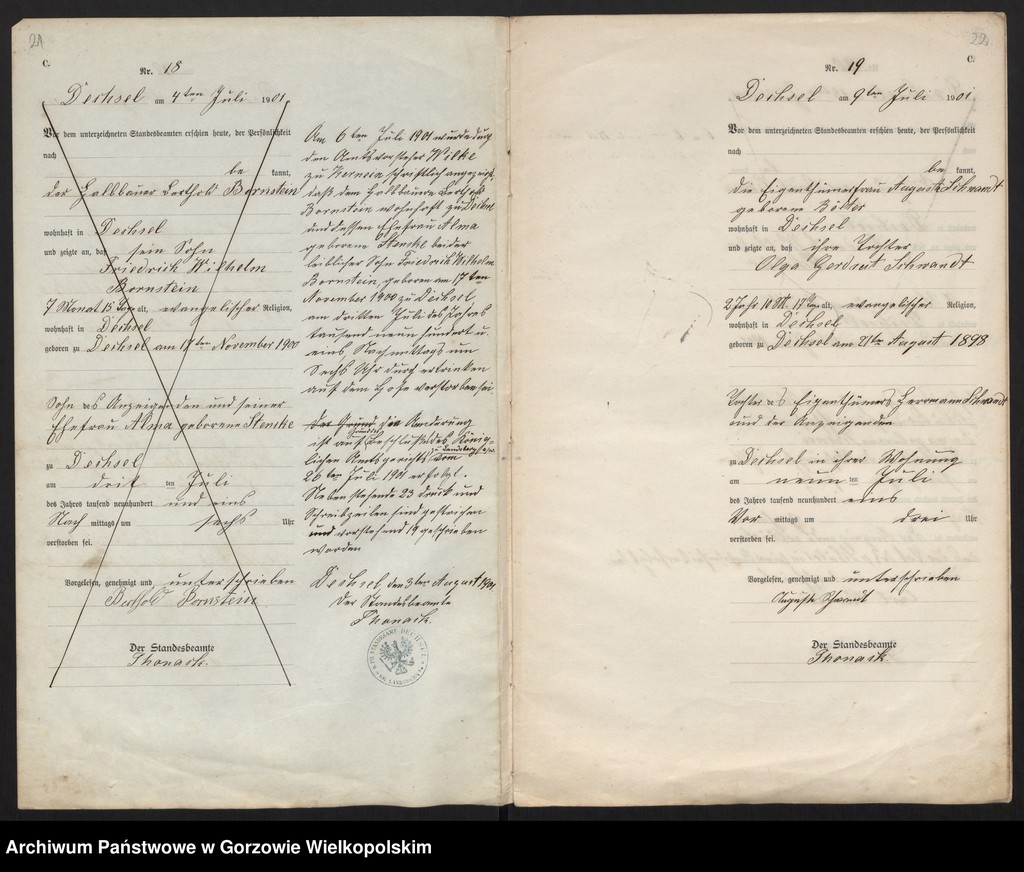 21
C.
Nr. 18
Dechsel am 4ten Juli 1901.
Vor dem unterzeichneten Standesbeamten erschien heute, der Persönlichkeit
nach
be kannt,
der Halbbauer Berthold Bornstein
wohnhaft in Dechsel
und zeigte an, daß sein Sohn
Friedrich Wilhelm
Bornstein
7 Monat 15 Tage alt, evangelischer Religion,
wohnhaft in Dechsel
geboren zu Dechsel am 17ten November 1900
Sohn des Anzeigenden und seiner
Ehefrau Alma geborene Stenske
zu Dechsel
am drit ten Juli
des Jahres tausend neunhundert und eins
Nach mittags um sechs Uhr
verstorben sei.
Vorgelesen, genehmigt und unterschrieben
Berthold Bornstein
Der Standesbeamte
Thonack.
Am 6ten Juli 1901 wurde durch
den Amtsvorsteher Wilke
zu schriftlich angezeigt,
daß dem Halbbauern Berthold
Bornstein wohnhaft zu Dechsel
und dessen Ehefrau Alma
geborene Stenske beider
leiblicher Sohn Friedrich Wilhelm
Bornstein, geboren am 17ten
November 1900 zu Dechsel,
am dritten Juli des Jahres
tausend neunhundert u.
eins Nachmittags um
Sechs Uhr durch ertrinken
auf dem Hofe verstorben sei.
Der Grund Die Änderung
ist auf Grund des Beschlusses des König-
lichen Amtsgerichts zu Landsberg a/W. vom
26ten Juli 1901 erfolgt.
Nebenstehende 23 Druck und
Schreibzeilen sind gestrichen
und vorstehend 19 geschrieben
worden
Dechsel, den 3ten August 1901
Der Standesbeamte
Thonack.
STANDESAMT DECHSEL
22
C.
Nr. 19
Dechsel am 9ten Juli 1901
Vor dem unterzeichneten Standesbeamten erschien heute, der Persönlichkeit
nach
be kannt,
die Eigenthümerfrau Auguste Schwandt
geborene
wohnhaft in Dechsel
und zeigte an, daß ihre Tochter
Olga Gerdrut Schwandt
2 Jahr 10 M. 17 Tage alt, evangelischer Religion,
wohnhaft in Dechsel
geboren zu Dechsel am 21ten August 1898
Tochter des Eigenthümers Herrmann Schwandt
und der Anzeigenden
zu Dechsel in ihrer Wohnung
am neun ten Juli
des Jahres tausend neunhundert eins
Vor mittags um drei Uhr
verstorben sei.
Vorgelesen, genehmigt und unterschrieben
Auguste Schwandt
Der Standesbeamte
Thonack.
Archiwum Państwowe w Gorzowie Wielkopolskim